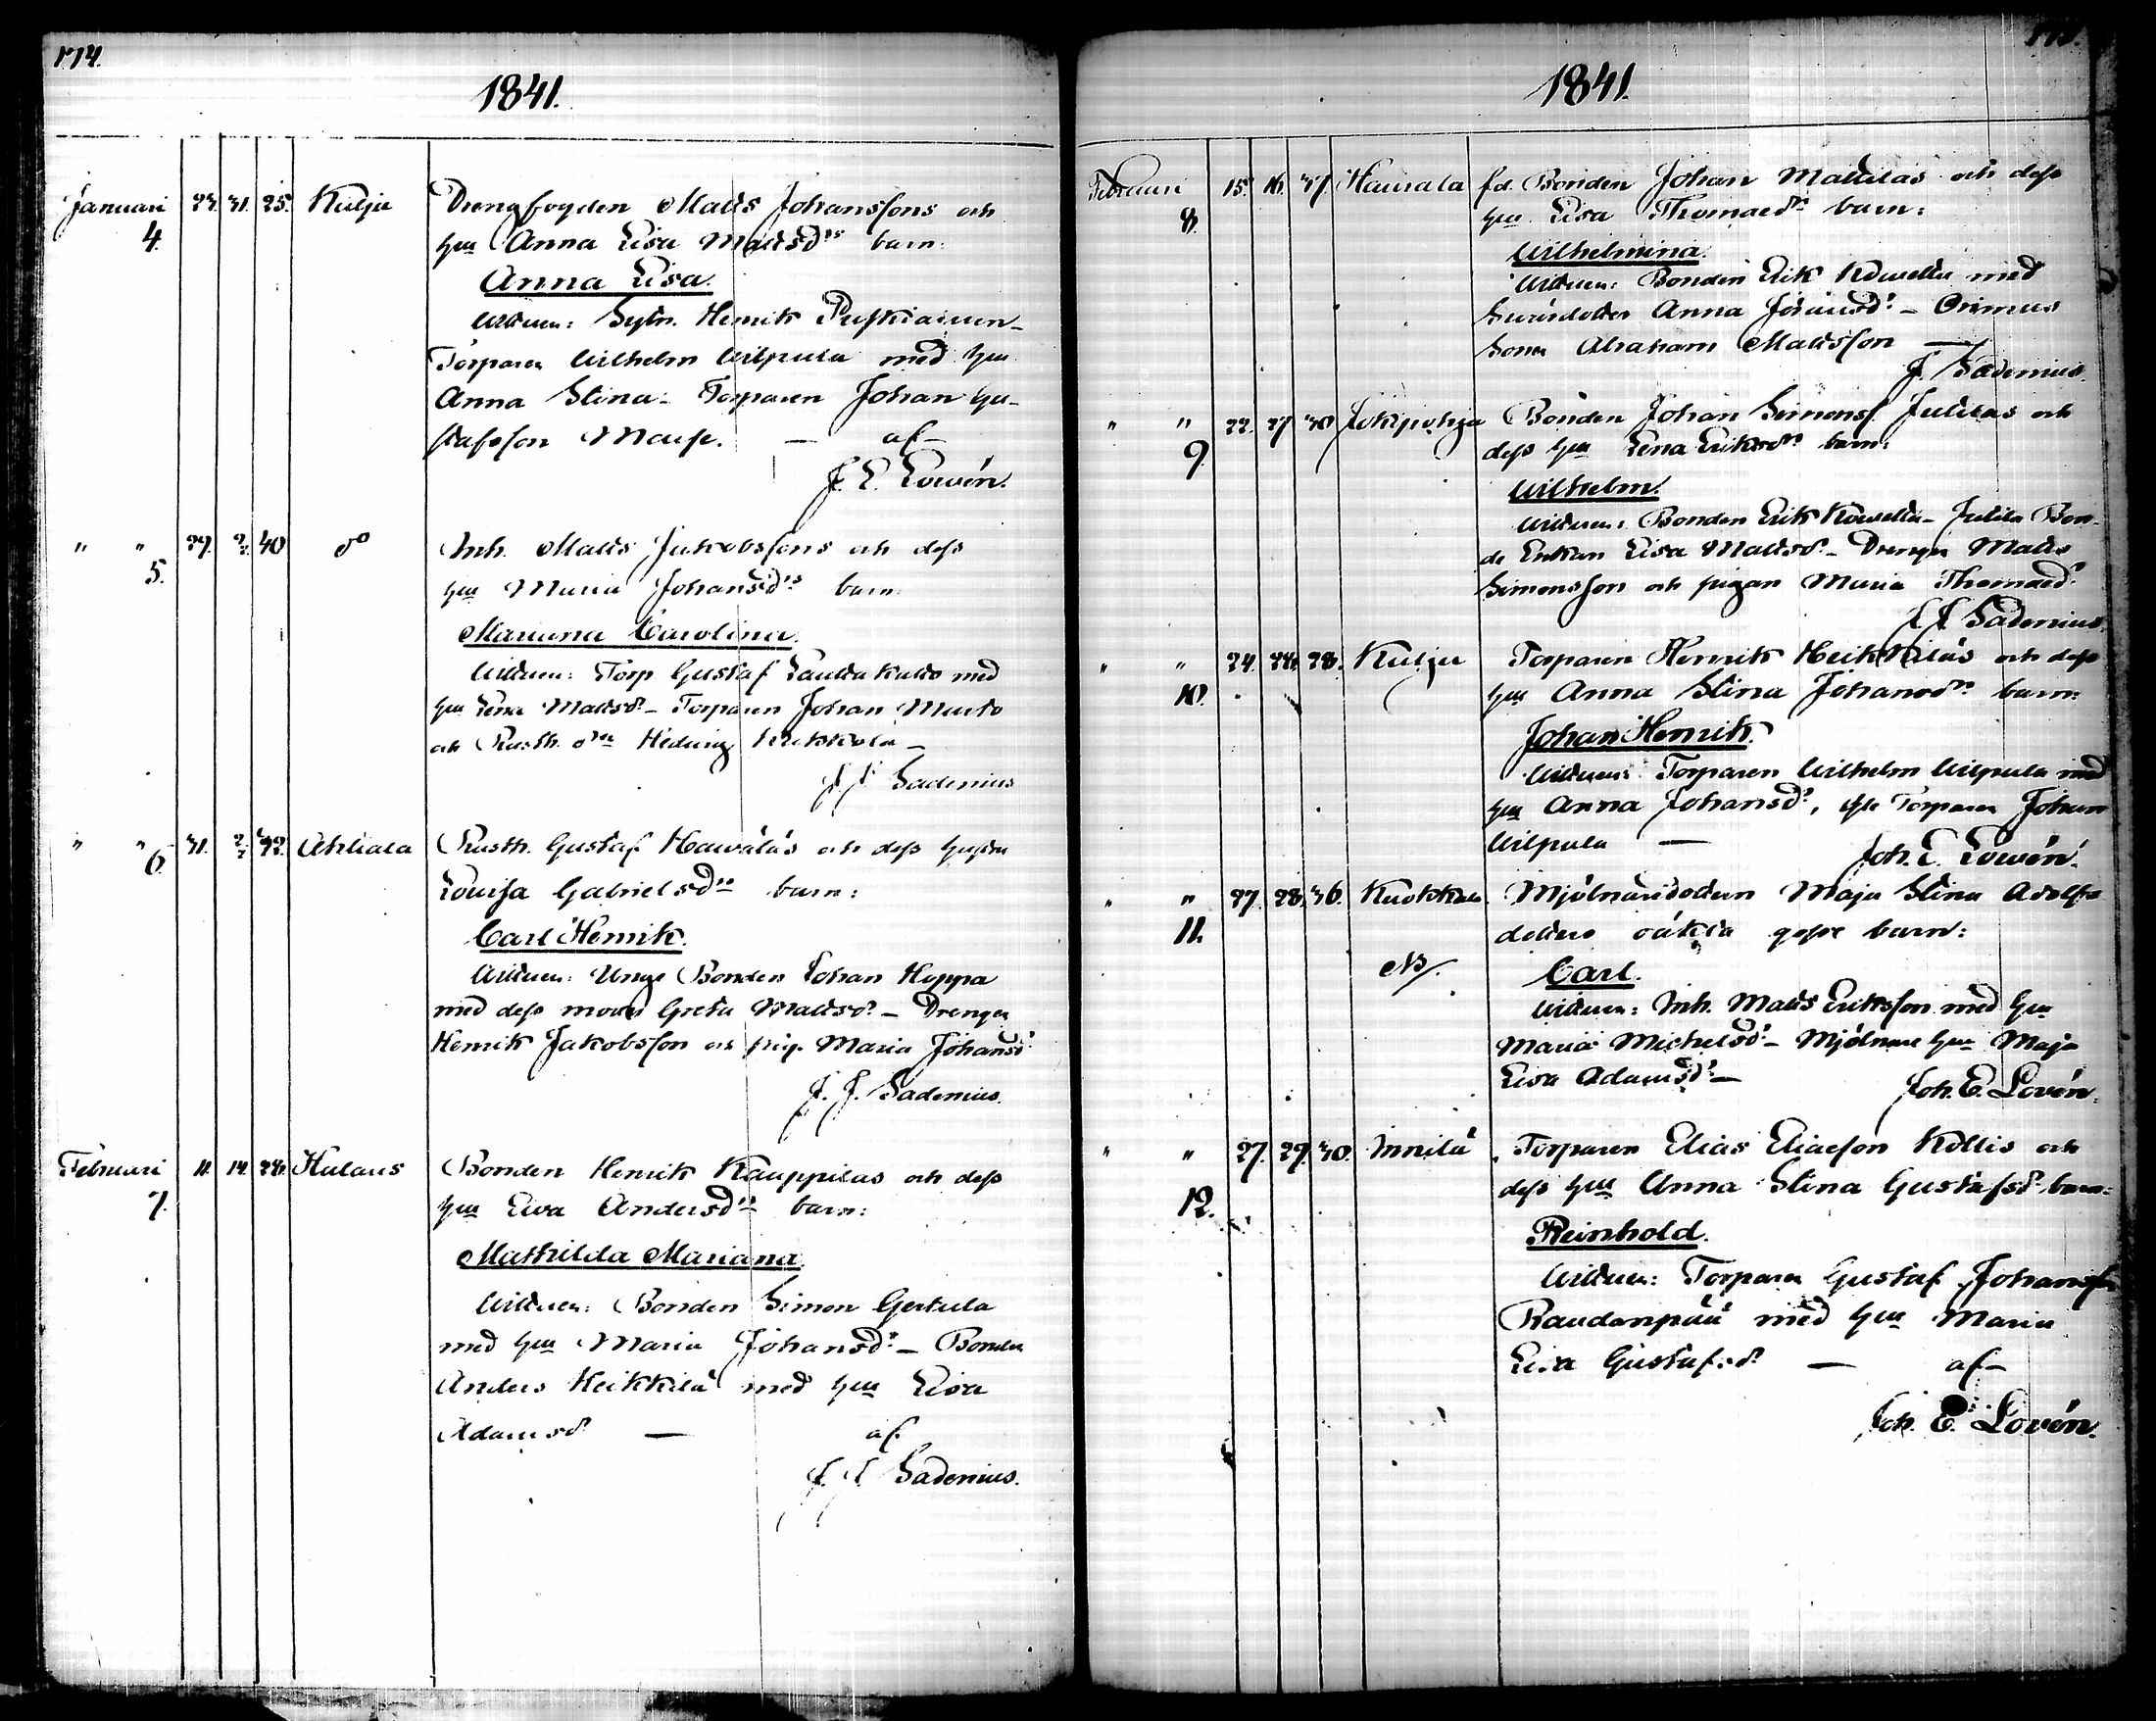 174.
1841.
Januari 23. 31. 25. Kulju Drengfogden Matts Johanssons och
4. hu Anna Lisa Mattsdrs barn:
Anna Lisa.
Wittnen: Sytn. Henrik
Torparen Wilhelm Wilpula med hu
Anna Stina - Torparen Johan Gu-
stafsson - af -
J. E. Lowén.
" " 29. 40 do Inh. Matts Jakobssons och dess
5. hu Maria Johansdrs barn:
Mariana Carolina.
Wittnen: Torp Gustaf med
hu Lena Mattsdr - Torparen Johan
och Rusth. Hedvig
J. J. Sadenius
" " 31. 42. Ahtiala Rusth. Gustaf Hawalas och dess hustru
6. Lovisa Gabrielsdrs barn:
Carl Henrik.
Wittnen: Unge Bonden Johan Hoppa
med dess moder Greta Mattsdr - Drengen
Henrik Jakobsson och pig. Maria Johansdr
J. J. Sadenius.
Februari 11. 14. 24. Hulaus Bonden Henrik Kauppilas och dess
7. hu Eva Andersdrs barn:
Mathilda Mariana.
Wittnen: Bonden Simon Gertula
med hu Maria Johansdr - Bonden
Anders Heikkilä med hu Lisa
Adamsdr - af
J. J. Sadenius.
175.
1841.
Februari 15. 16. 37. Haurala fd. Bonden Johan Mattilas och dess
8. hu Lisa Thomaedrs barn:
Wilhelmina.
Wittnen: Bonden Erik med
Anna - 
Sonen Abraham Mattsson -
J. Sadenius.
" " 22. 27. 30 Jokipohja Bonden Johan Simonss. Julilas och
9. dess hu Lena Eriksdrs barn:
Wilhelm.
Wittnen: Bonden Erik - Julila Bon-
de Enkan Lisa Mattsdr - Drengen Matts
Simonsson och pigan Maria Thomaedr
J. J. Sadenius.
" " 24. 28. 28. Kulju Torparen Henrik Heikkiläs och dess
10. hu Anna Stina Johansdrs barn:
Johan Henrik.
Wittnen: Torparen Wilhelm Wilpula med
hu Anna Johansdr, Torparen Johan
Wilpula - Joh. E. Lowén.
" " 27. 28. 36. Kuokkala Mjölnaredottern Maja Stina Adolfs
11. dotters oäkta gosse barn:
NB. Carl.
Wittnen: Inh. Matts Eriksson med hu
Maria Michelsdr - Mjölnare hu Maja
Lisa Adamsdr - Joh. E. Lovén.
" " 27. 29. 30. Innilä Torparen Elias Eliaeson Kollis och
12. dess hu Anna Stina Gustafsdrs barn:
Reinhold.
Wittnen: Torparen Gustaf Johansson
Raudanpää med hu Maria
Lisa Gustafsdr - af -
Joh. E. Lovén.